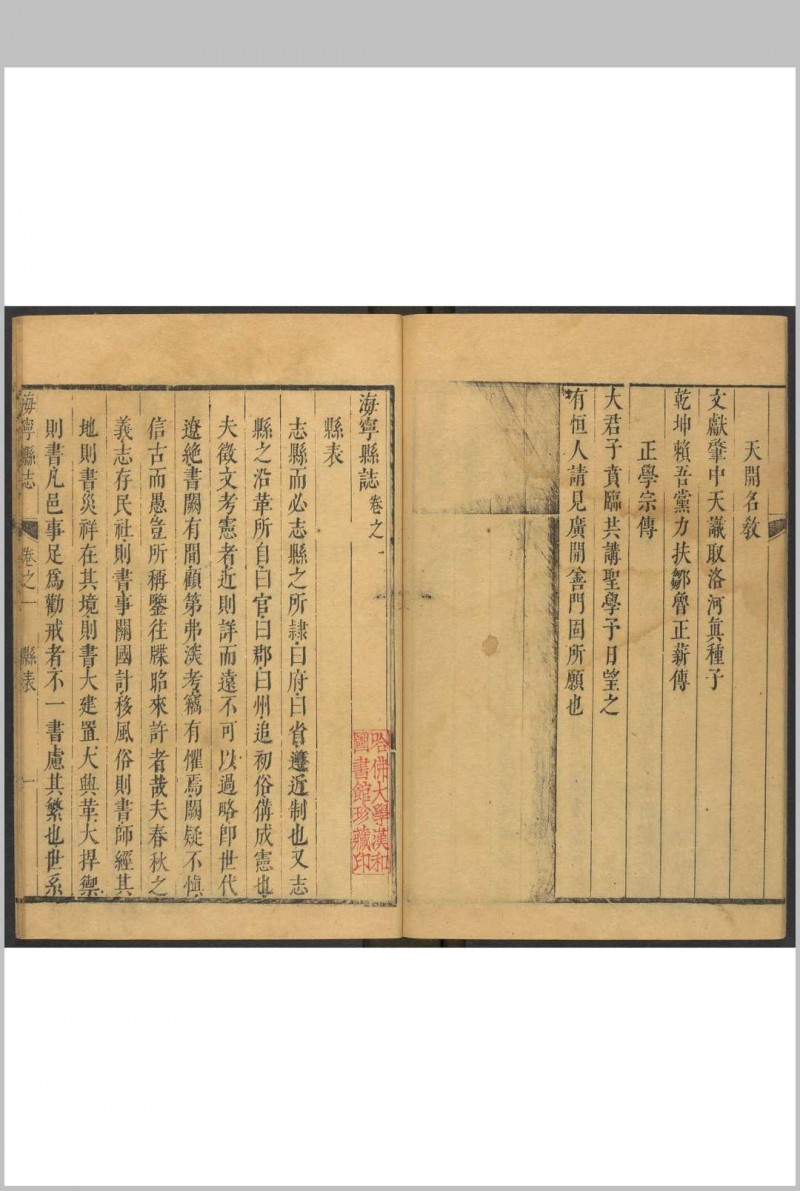 天開名教
文獻肇中天議取洛河眞種子
乾坤賴吾黨力扶鄒魯正薪傳
正學宗傳
大君子賁臨共講聖學予日望之
有恒人請見廣開黌門固所願也
海寧縣誌卷之一
縣表
志縣而必志縣之所隷曰府曰省遵近制也又志
縣之沿革所自曰官曰郡曰州追初俗備成憲也
夫徵文考憲者近則詳而遠不可以過略卽世代
遼絶書闕有間顧第弗淡考竊有懼焉闕疑不愼
信古而愚豈所稱鑒往牒昭來許者哉夫春秋之
義志存民社則書事關國計移風俗則書師經其
地則書災祥在其境則書大建置大興革大捍禦
則書凡邑事足爲勸戒者不一書慮其繁也世系
海寧縣志
卷之一
縣表
一
哈佛大學漢和
圖書館珍藏印